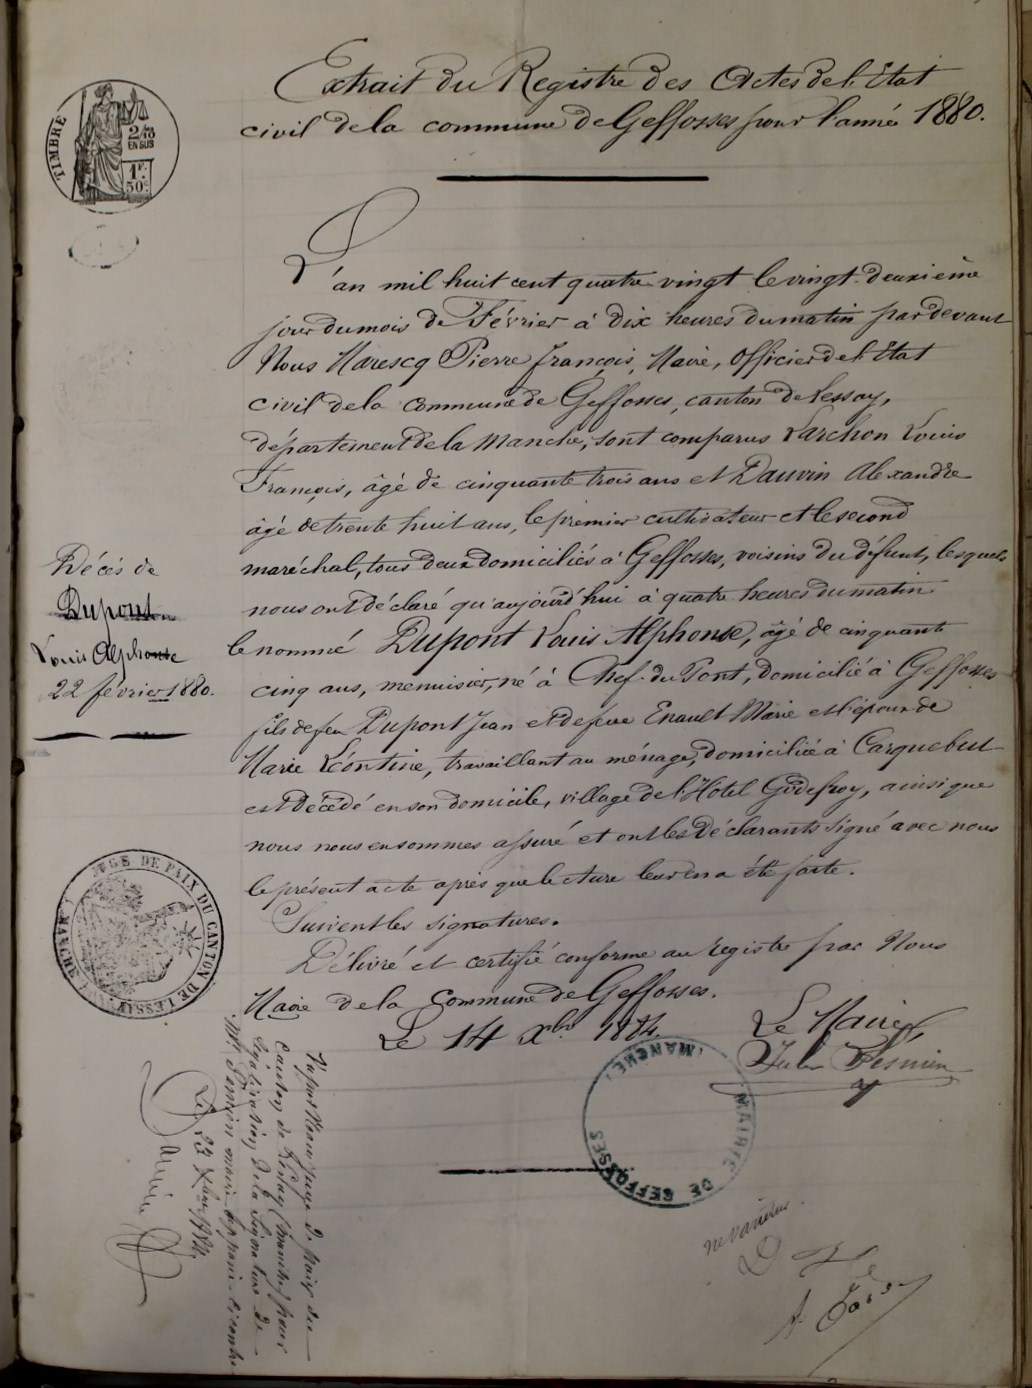 Extrait du Registre des Actes de l'Etat
civil de la commune de Geffosses pour l'année 1880.
TIMBRE
2/10
EN SUS
1F.
50c.
L'an mil huit cent quatre vingt le vingt-deuxième
jour du mois de Février à dix heures du matin par devant
Nous Marescq Pierre François, Maire, Officier de l'Etat
civil de la Commune de Geffosses, canton de Lessay,
département de la Manche, sont comparus Larchon Louis
François, âgé de cinquante trois ans et Dauvin Alexandre
âgé de trente huit ans, le premier cultivateur et le second
maréchal, tous deux domiciliés à Geffosses, voisins du défunt, lesquels
nous ont déclaré qu'aujourd'hui à quatre heures du matin
le nommé Dupont Louis Alphonse, âgé de cinquante
cinq ans, menuisier, né à Chef-du-Pont, domicilié à Geffosses
fils de feu Dupont Jean et de feue Enault Marie et époux de
Marie Léontine, travaillant au ménage, domiciliée à Carquebut
est décédé en son domicile, village de l'Hôtel Godefroy, ainsi que
nous nous en sommes assuré et ont les déclarants signé avec nous
le présent acte après que lecture leur en a été faite.
Suivent les signatures.
Délivré et certifié conforme au registre par Nous
Maire de la Commune de Geffosses.
Le 14 Xbre 1884
Le Maire,
Décès de
Dupont
Louis Alphonse
22 février 1880.
JUGE DE PAIX DU CANTON DE LESSAY (MANCHE)
MAIRIE DE GEFFOSSES (MANCHE)
Vu par Nous juge de paix du
canton de Lessay (Manche) pour
légalisation de la signature de
Mr maire
Le 23 Xbre 1884.
ne varietur